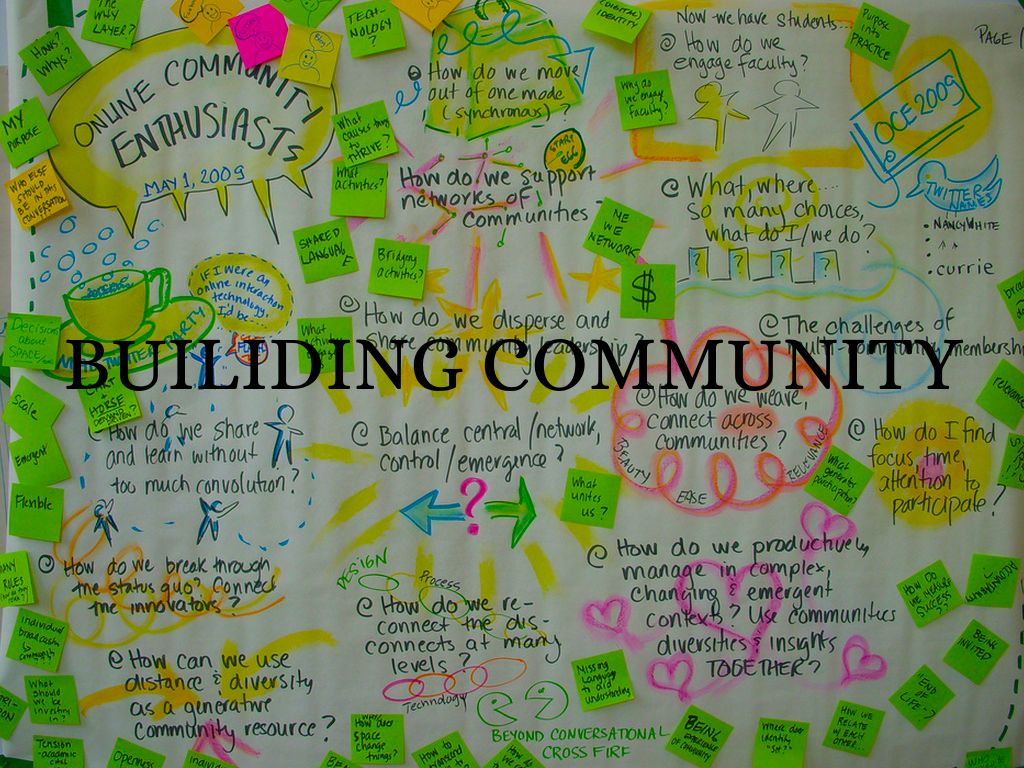 The
WHY
LAYER?
HOW'S?
WHYS?
MY
PURPOSE
WHO ELSE
SHOULD
BE IN THIS
CONVERSATION?
ONLINE COMMUNITY
ENTHUSIASTS
MAY 1, 2009
TECH-
NOLOGY
?
(DIGITAL)
IDENTITY
Purpose
into
PRACTICE
PAGE 1
How do we move
out of one mode
(synchronous)?
What
causes this
to
THRIVE?
What
activities?
Now we have students...
How do we
engage faculty?
Why do
we engage
faculty?
OCE 2009
TWITTER
NAMES
• NANCYWHITE
• currie
START
@
666
How do we support
networks of
communities -
What, where....
So many choices,
what do I/we do?
SHARED
LANGUAGE
Bridging
activities?
WE
WE
NETWORK
$
IF I were an
online interaction
technology,
I'd be...
TWITTER PARTY
Decisions
about
SPACE
How do we disperse and
Share community leadership?
The challenges of
multi-community membership
BUILIDING COMMUNITY
Scale
Emergent
Flexible
CART
&
HORSE
How do we share
and learn without
too much convolution?
Balance central/network,
control/emergence?
?
What
unites
us?
How do we weave,
connect across
communities?
BEAUTY
EASE
RELEVANCE
What
generates
participation?
relevance
How do I find
focus time,
attention to
participate?
How do we break through
the status quo? Connect
the innovators?
DESIGN
Process
Technology
How do we re-
connect the dis-
connects at many
levels?
How do we productively
manage in complex,
changing & emergent
contexts? Use communities
diversities & insights
TOGETHER?
HOW DO
WE MEASURE
SUCCESS??
BEING
INVITED
"END OF
LIFE"?
How can we use
distance & diversity
as a generative
Community resource?
What
should
we be
investing
in?
Tension
-academic
Openness
How does
space
change
things?
Missing
Language
to aid
understanding
BEYOND CONVERSATIONAL
CROSS FIRE
BEING
EXPERIENCE
OF COMMUNITY
Where does
identity
"sit"?
HOW WE
RELATE
WE
EACH
OTHER...